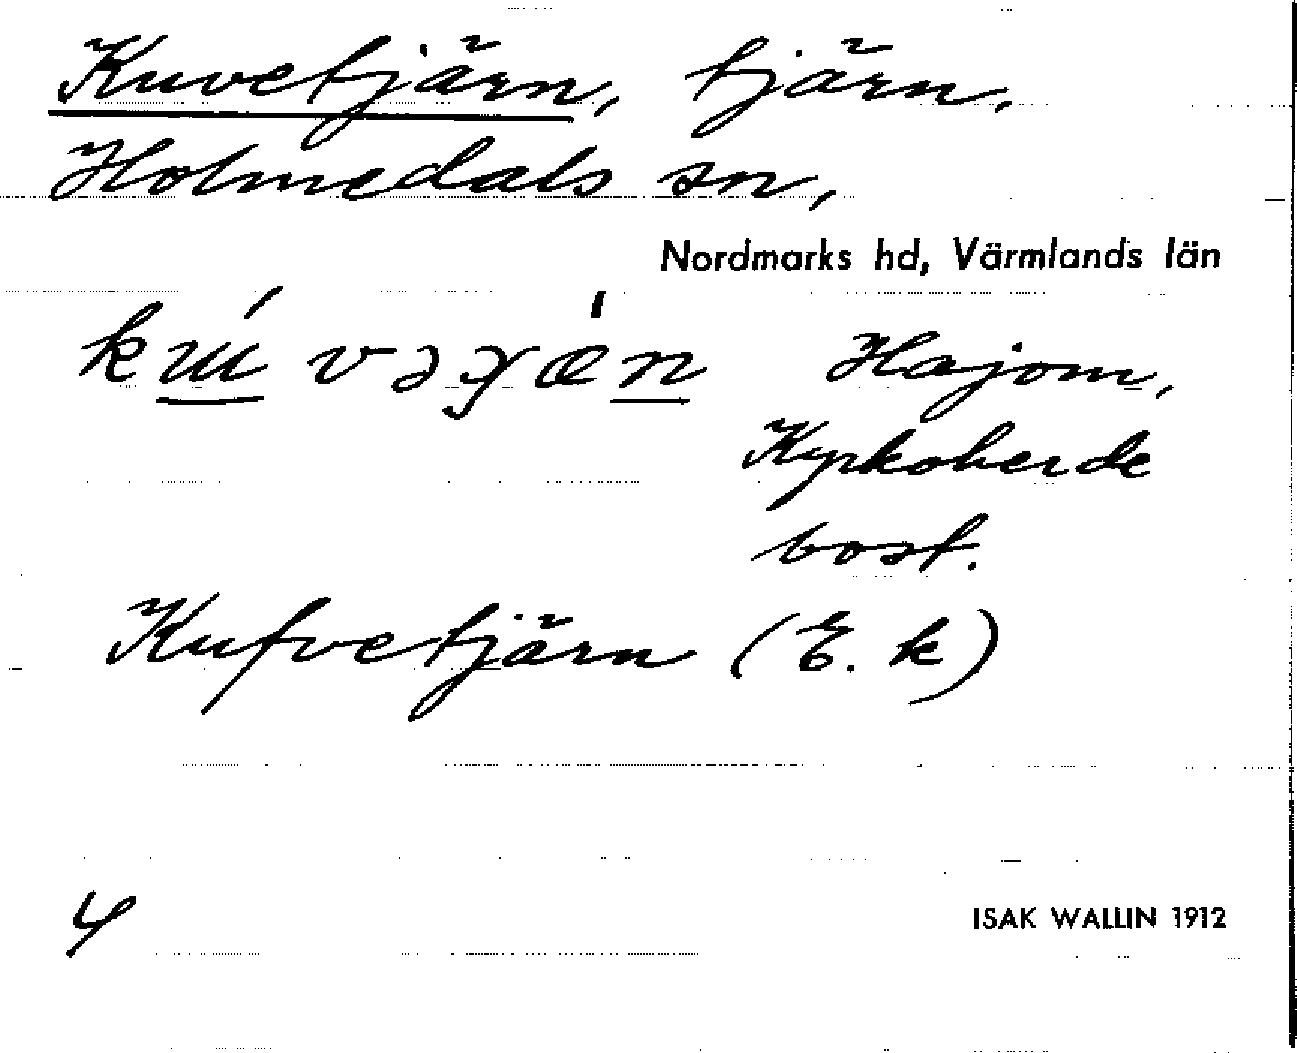 Kuvetjärn, tjärn,
Holmedals sn,
Nordmarks hd, Värmlands län
Hajom,
Kyrkoherde
bost.
Kufvetjärn (E. k)
4
ISAK WALLIN 1912